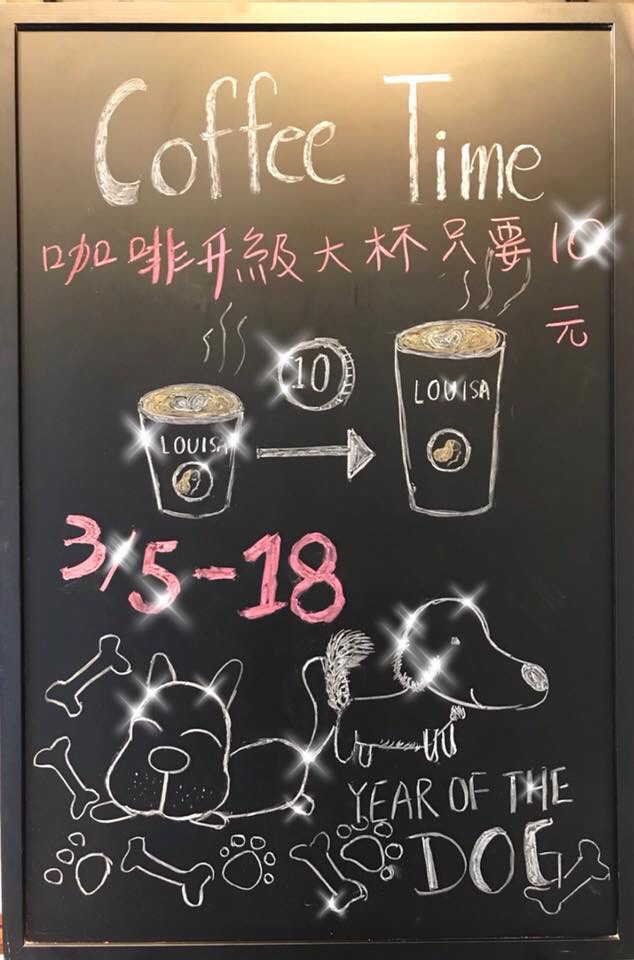 Coffee Time
咖啡升級大杯只要10
元
10
LOUISA
LOUISA
3/5-18
YEAR OF THE
DOG